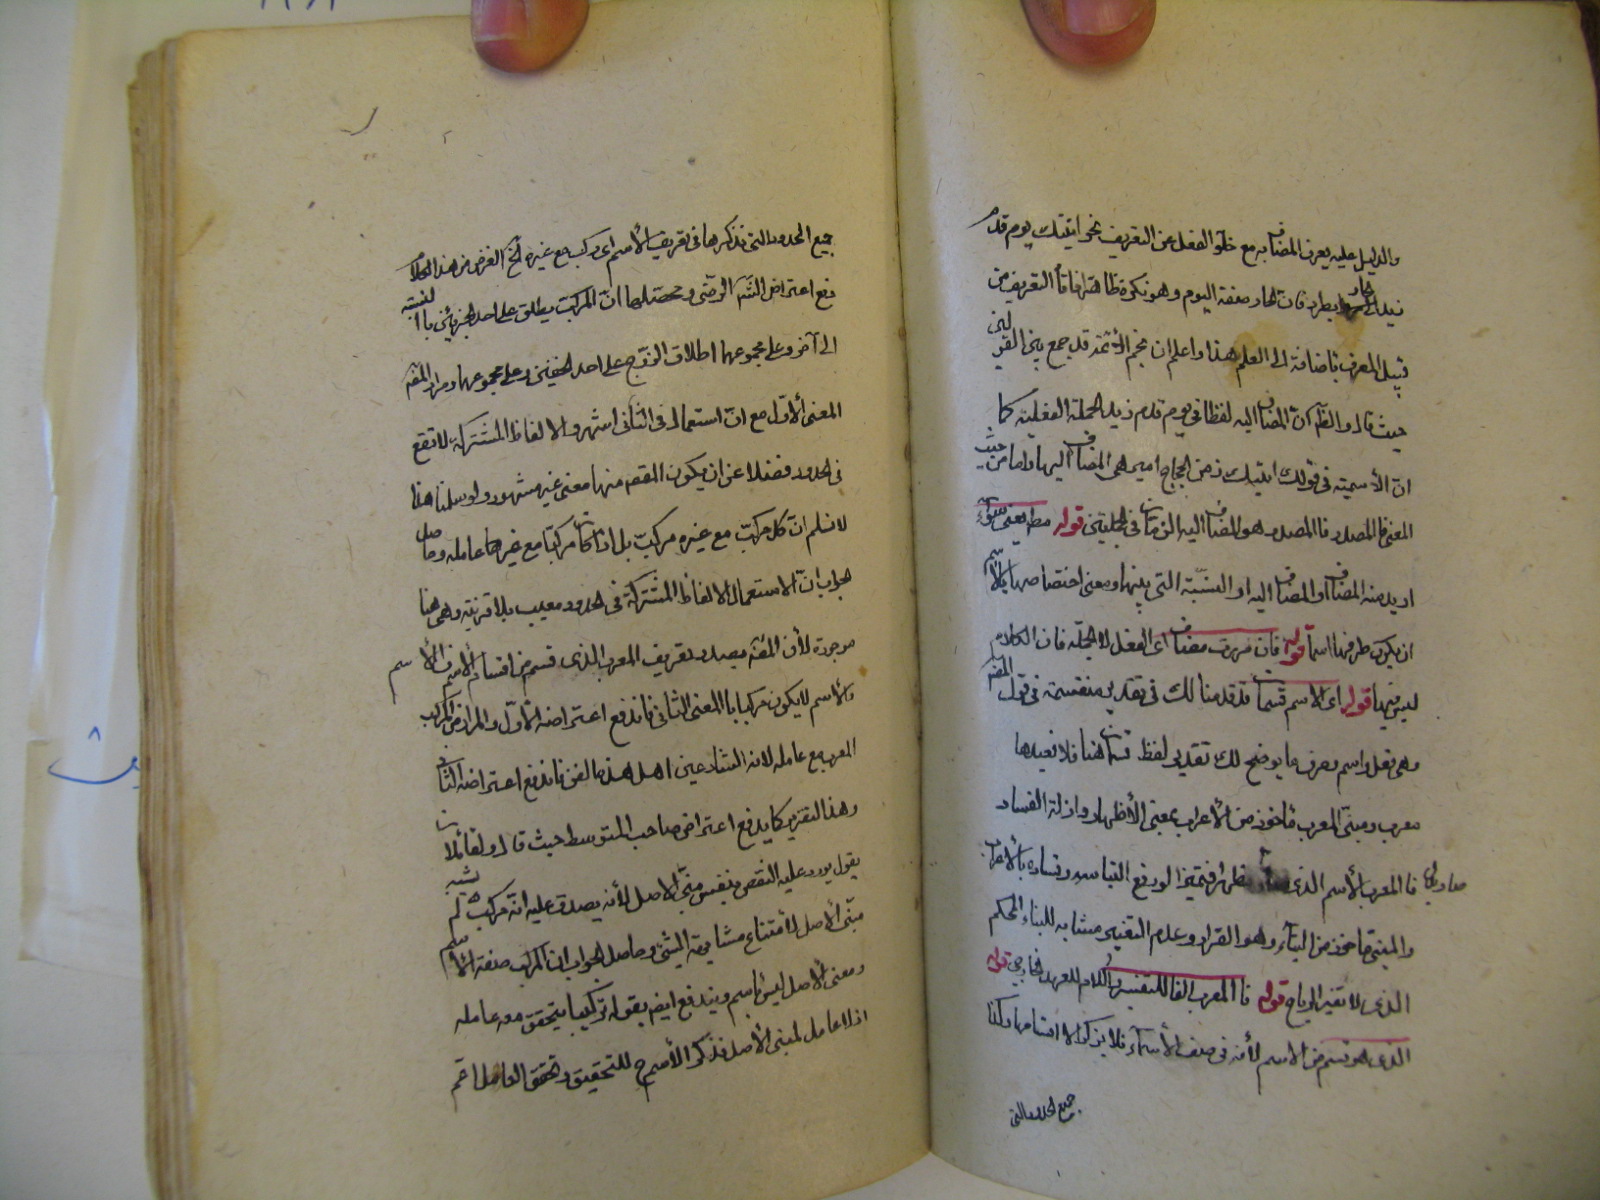 والدليل عليه يعرف المضاف به مع خلو الفعل عن التعريف نحو اتيتك يوم قدم
زيد الحار يطرد فان الحار صفة اليوم وهو نكرة ظاهرا فاقا التعريف من
قبيل المعرف باضافة الى العلم هذا واعلم ان نجم الأئمة قد جمع بين القولين
حيث قال والظ ان المضاف اليه لفظا في يوم قدم زيد الجملة الفعلية كما
ان الأسمية في قولك اتيتك زمن الحجاج امير هي المضاف اليها واما من حيث
المعنى فا المصدر فا المصدر هو المضاف اليه الزمان في الجملتين قوله مط يعنى سواء
اريد منه المضاف او المضاف اليه او النسبة التى بينهما ومعنى اختصاصها بالاسم
ان يكون طرفها اسما قوله فان ضربت مضاف اى الفعل لا الجملة فان الكلام
ليس فيها قوله اى الاسم قسمان قد قدمنا لك في تقدير منقسمة في قول المصنف
وهى فعل واسم وحرف ما يوضح لك تقدير لفظ قسمان هنا فلا نعيدها
معرب ومبنى المعرب مأخوذ من الأعراب بمعنى الأظهار وازلة الفساد
فا المعرب الأسم الذى صار بها مظهرا فيتميز او رفع التباسه وفساده بالأعراب
والمبنى ماخوذ من البناء وهو القرار وعدم التغير مشابه للبناء المحكم
الذى لا تغير الرياح قوله فا المعرب الفا للتفسير والام للعهد الخارجى قوله
الذى هو قسم من الاسم لأنه في صنف الأسماء فلا يذكر الا اقسامها وكذا
جميع الحدود التى
جميع الحدود التى نذكرها في تعريف الأسم اى ركب مع غيره الخ الغرض من هذا الكلام
دفع اعتراض الشم الرضى ومحصلها ان المركب يطلق على احد الجزئين بالنسبة
الى آخر وعلى مجموعهما اطلاق الزوج على احد الخفين وعلى مجموعهما ومراد المصنف
المعنى الأول مع ان استعماله في الثانى اشهر والالفاظ المشتركة لا تقع
في الحدود فضلا عن ان يكون المقصد منها معنى غير مشهور ولو سلمنا هنا
لا نسلم ان كل مركب مع غيره مركب بل اذا كان مركبا مع غير هما عامله وحاصل
الجواب ان الاستعمال الالفاظ المشتركة في الحدود معيب بلا قرينة وهى هنا
موجودة لأن المصنف بصدد تعريف المعرب الذى قسم من اقسام الأسم الأسم
والأسم لا يكون مركبا با المعنى الثانى فاندفع اعتراضه الأول والمراد من المركب
المعرب مع عامله لانه المتبادر عين اهل هذه الفن فاندفع اعتراضه الثانى
وهذا التقرير كما يدفع اعتراض صاحب المتوسط حيث قال ولقائل ان
يقول يورد عليه النقص بنفس مبنى الاصل لأنه يصدق عليه انه مركب لم يشبه
مبنى الأصل لأمتناع مشابهة الشئ وحاصل الجواب ان المركب صفة الأسم
ومعنى الأصل ليس بأسم ويندفع ايضا بقوله تركيبا يتحقق معه عامله
اذ لا عامل لمبنى الأصل فذكر الأسم ح للتحقيق وتحقق العامل اعم